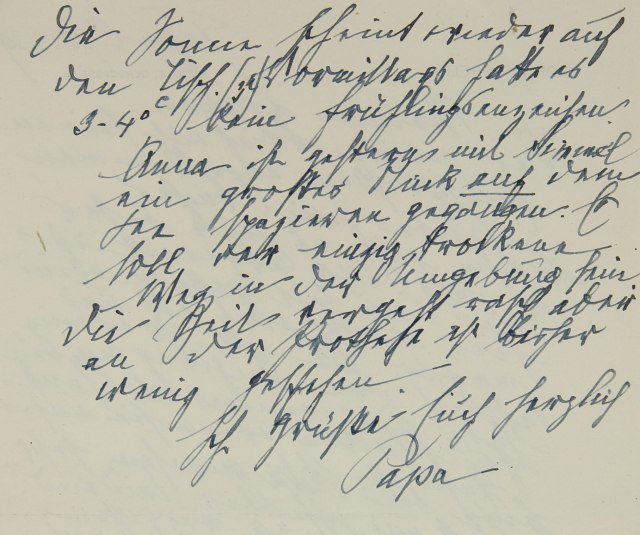 Die Sonne scheint wieder auf
den Tisch. Vormittags hatte es
3-4° C kein Frühlingsanzeichen.
Anna ist gestern mit
ein grosses Stück auf dem
See spazieren gegangen. Es
soll der einzig trockene
Weg in der Umgebung sein
Die Zeit vergeht rasch aber
an der Prothese ist bisher
wenig geschehen
Ich grüße Euch herzlich
Papa